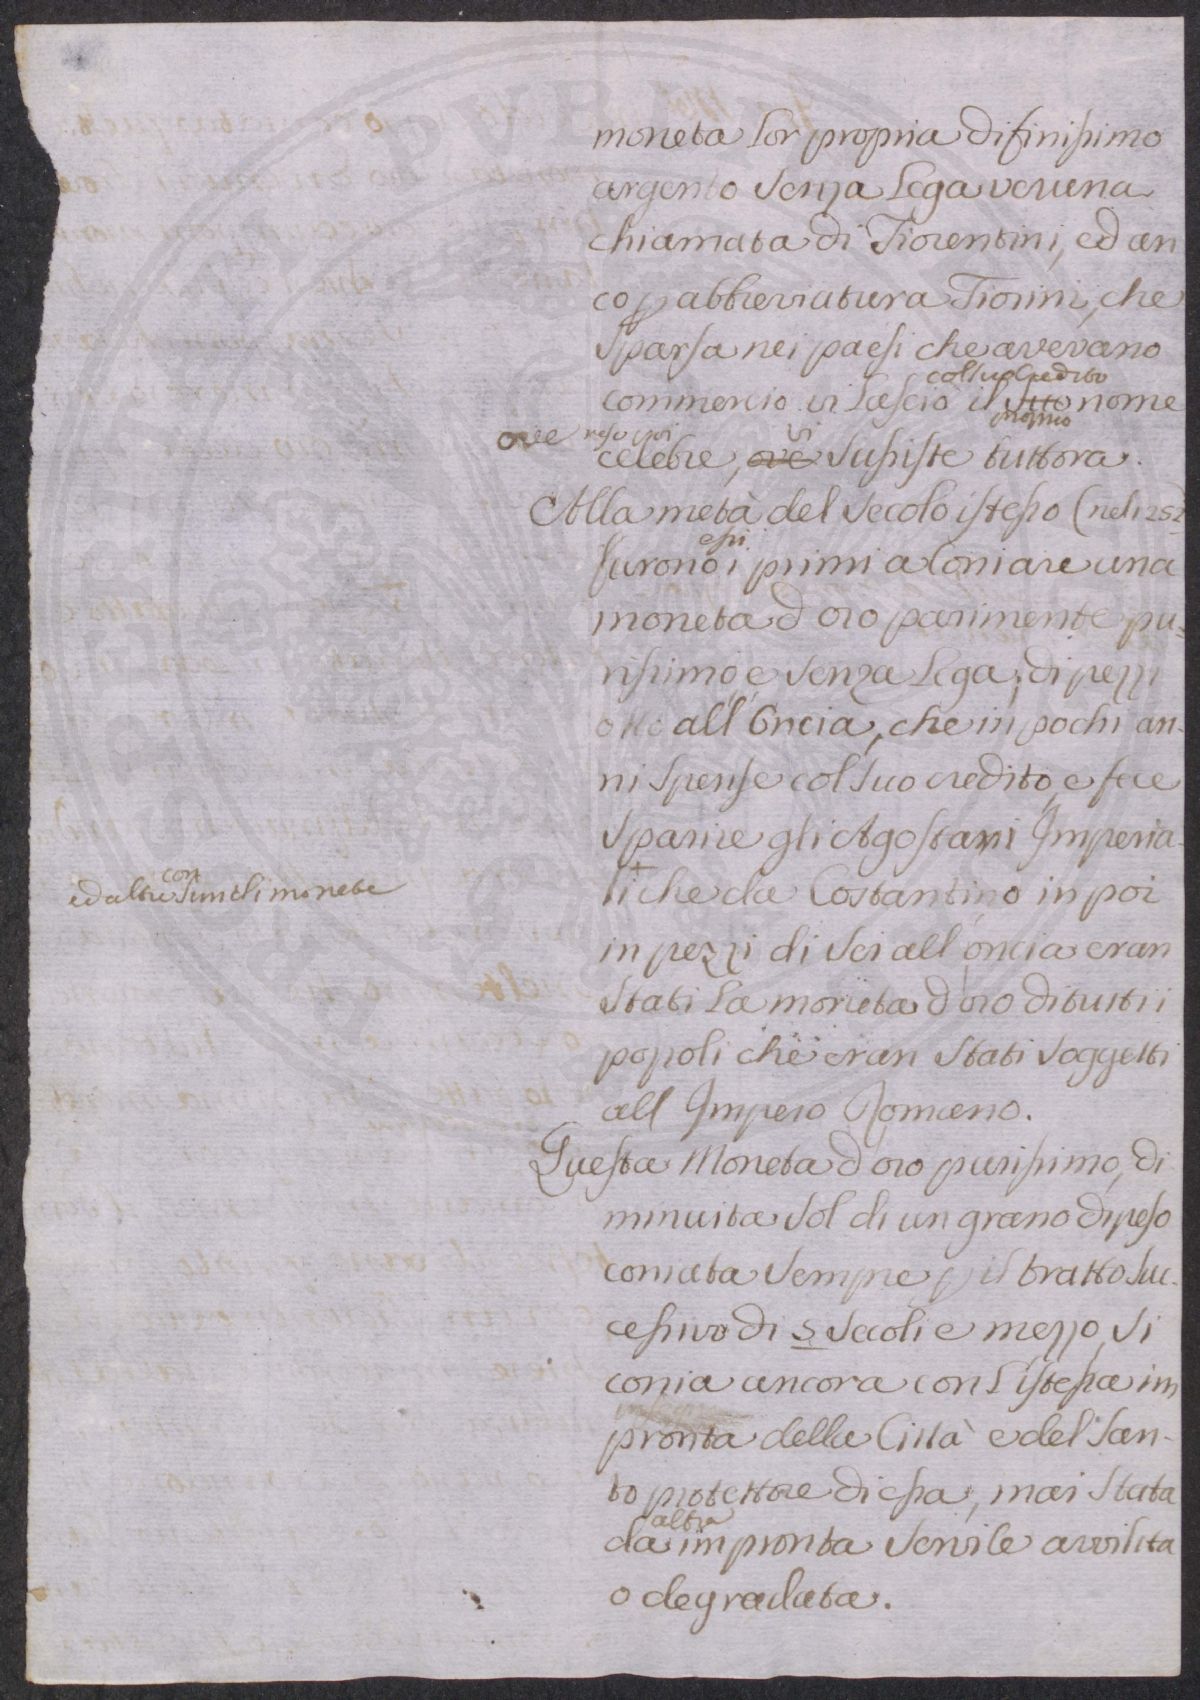 moneta lor propria di finissimo
argento senza lega veruna
chiamata di Fiorentini, ed an
co p abbreviatura Fiorini, che
sparsa nei paesi che avevano
col suo Credito
commercio vi lasciò il nome
proprio
ove reso poi vi
celebre, ove susiste tuttora.
Alla metà del secolo istesso (nel 1252
essi
furono i primi a Coniare una
moneta d oro parimente pu=
rissimo, e senza lega, di pezzi
otto all' Oncia, che in pochi an-
ni spense col suo credito, e fece
sparire gli Agostari Imperia-
con
ed altre simili monete
li che da Costantino in poi
in pezzi di sei all' oncia eran
stati la moneta d'oro di tutti i
popoli che eran stati soggetti
all Impero Romano.
Questa Moneta d oro purissimo, di
minuita sol di un grano di peso
coniata sempre p il tratto suc-
cessivo di 5 secoli e mezzo, si
conia ancora con l istessa im
pronta della Città e del San-
to protettore di essa, mai stata
altra
da impronta servile avvilita
o degradata.